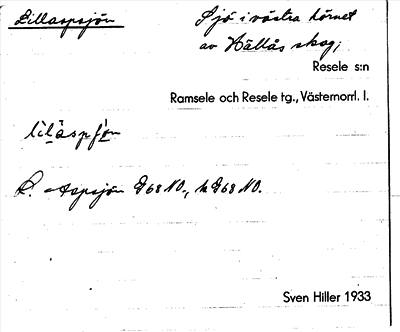 Lillaspsjön
Sjö i västra hörnet
av Hällås skog;
Resele s:n
Ramsele och Resele tg., Västernorrl. l.
lìlàspʃö́n
R. Aspsjön 968 NO., k 968 NO.
Sven Hiller 1933